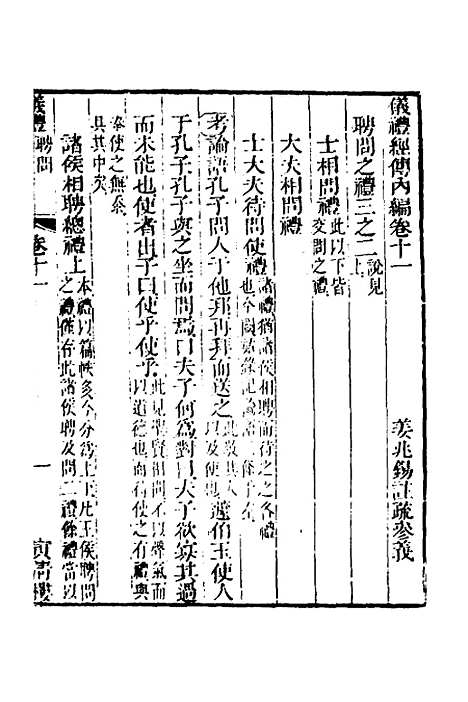 儀禮經傳內編卷十一
姜兆錫註疏參義
聘問之禮三之二說見上
士相問禮此以下皆交問之禮
大夫相問禮
士大夫待問使禮諸禮猶諸侯相聘而待之之各禮也今闕
考論語孔子問人于他邦再拜而送之蘧伯玉使人
于孔子孔子與之坐而問焉曰夫子何為對曰夫子欲寡其過
而未能也使者出子曰使乎使乎此見聖賢相問不以聲氣而以道德也而若使之有禮與
奉使之無忝具其中矣
諸侯相聘總禮上本禮以篇帙多今分為上下此王侯聘問之禮僅存此諸侯聘及問二禮
儀禮 聘問 卷十一 一 寅清樓